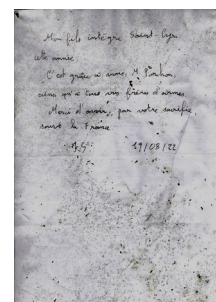 Mon fils intègre Saint-Cyr
cette année
C'est grâce à vous, M. Pinchon,
ainsi qu'à tous vos frères d'armes.
Merci d'avoir, par votre sacrifice,
sauvé la France
19/08/22